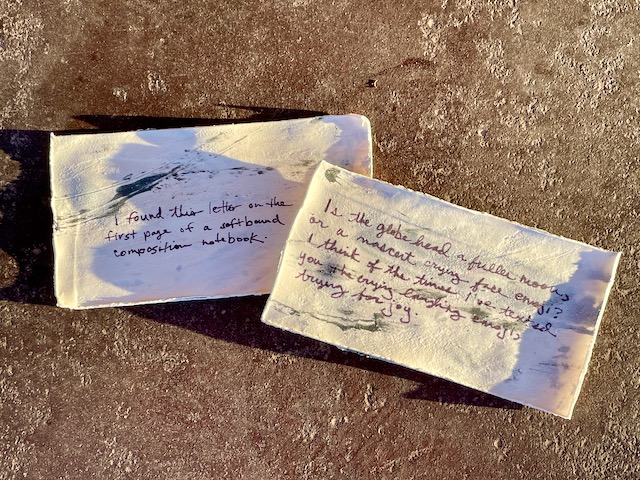 I found this letter on the
first page of a softbound
composition notebook.
Is the globe head a fuller moon,
or a nascent crying face emoji?
I think of the times I've texted
you the crying laughing emojis,
trying for joy.